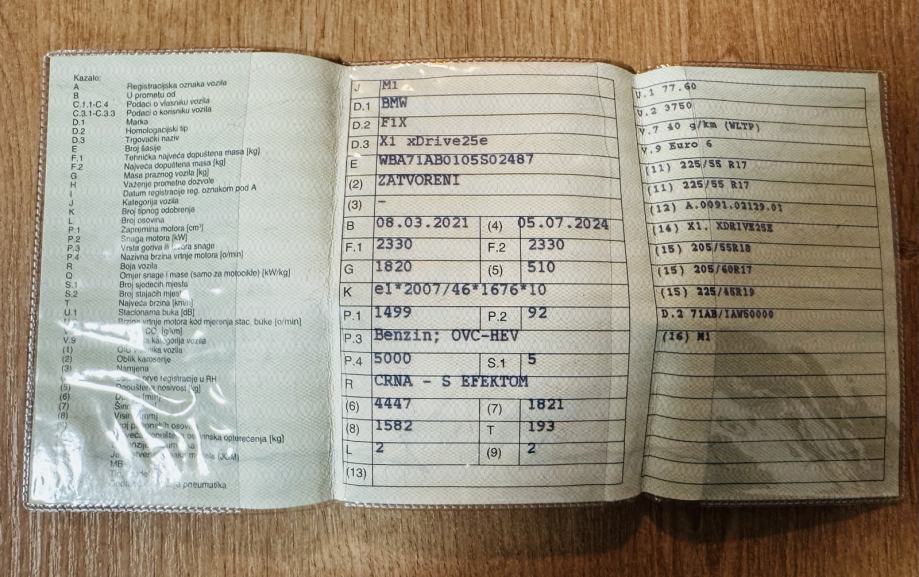 Kazalo:
A Registracijska oznaka vozila
B U prometu od
C.1.1-C.4 Podaci o vlasniku vozila
C.3.1-C.3.3 Podaci o korisniku vozila
D.1 Marka
D.2 Homologacijski tip
D.3 Trgovački naziv
E Broj šasije
F.1 Tehnička najveća dopuštena masa [kg]
F.2 Najveća dopuštena masa [kg]
G Masa praznog vozila [kg]
H Važenje prometne dozvole
I Datum registracije reg. oznakom pod A
J Kategorija vozila
K Broj tipnog odobrenja
L Broj osovina
P.1 Zapremina motora [cm³]
P.2 Snaga motora [kW]
P.3 Vrsta goriva ili izvora snage
P.4 Nazivna brzina vrtnje motora [o/min]
R Boja vozila
Q Omjer snage i mase (samo za motocikle) [kW/kg]
S.1 Broj sjedećih mjesta
S.2 Broj stajaćih mjesta
T Najveća brzina [km/h]
U.1 Stacionarna buka [dB]
Brzina vrtnje motora kod mjerenja stac. buke [o/min]
[g/km]
V.9 kategorija vozila
(1) vozila
(2) Oblik karoserije
(3) Namjena
prve registracije u RH
(5) Dopuštena nosivost [kg]
(6)
(7)
(8)
opterećenja [kg]
MB
pneumatika
J M1
D.1 BMW
D.2 F1X
D.3 X1 xDrive25e
E WBA71AB0105S02487
(2) ZATVORENI
(3) –
B 08.03.2021 (4) 05.07.2024
F.1 2330 F.2 2330
G 1820 (5) 510
K e1*2007/46*1676*10
P.1 1499 P.2 92
P.3 Benzin; OVC-HEV
P.4 5000 S.1 5
R CRNA - S EFEKTOM
(6) 4447 (7) 1821
(8) 1582 T 193
L 2 (9) 2
(13)
U.1 77.60
U.2 3750
V.7 40 g/km (WLTP)
V.9 Euro 6
(11) 225/55 R17
(11) 225/55 R17
(12) A.0091.02129.01
(14) X1. XDRIVE25E
(15) 205/55R18
(15) 205/60R17
(15) 225/45R19
D.2 71AB/IAW50000
(16) M1